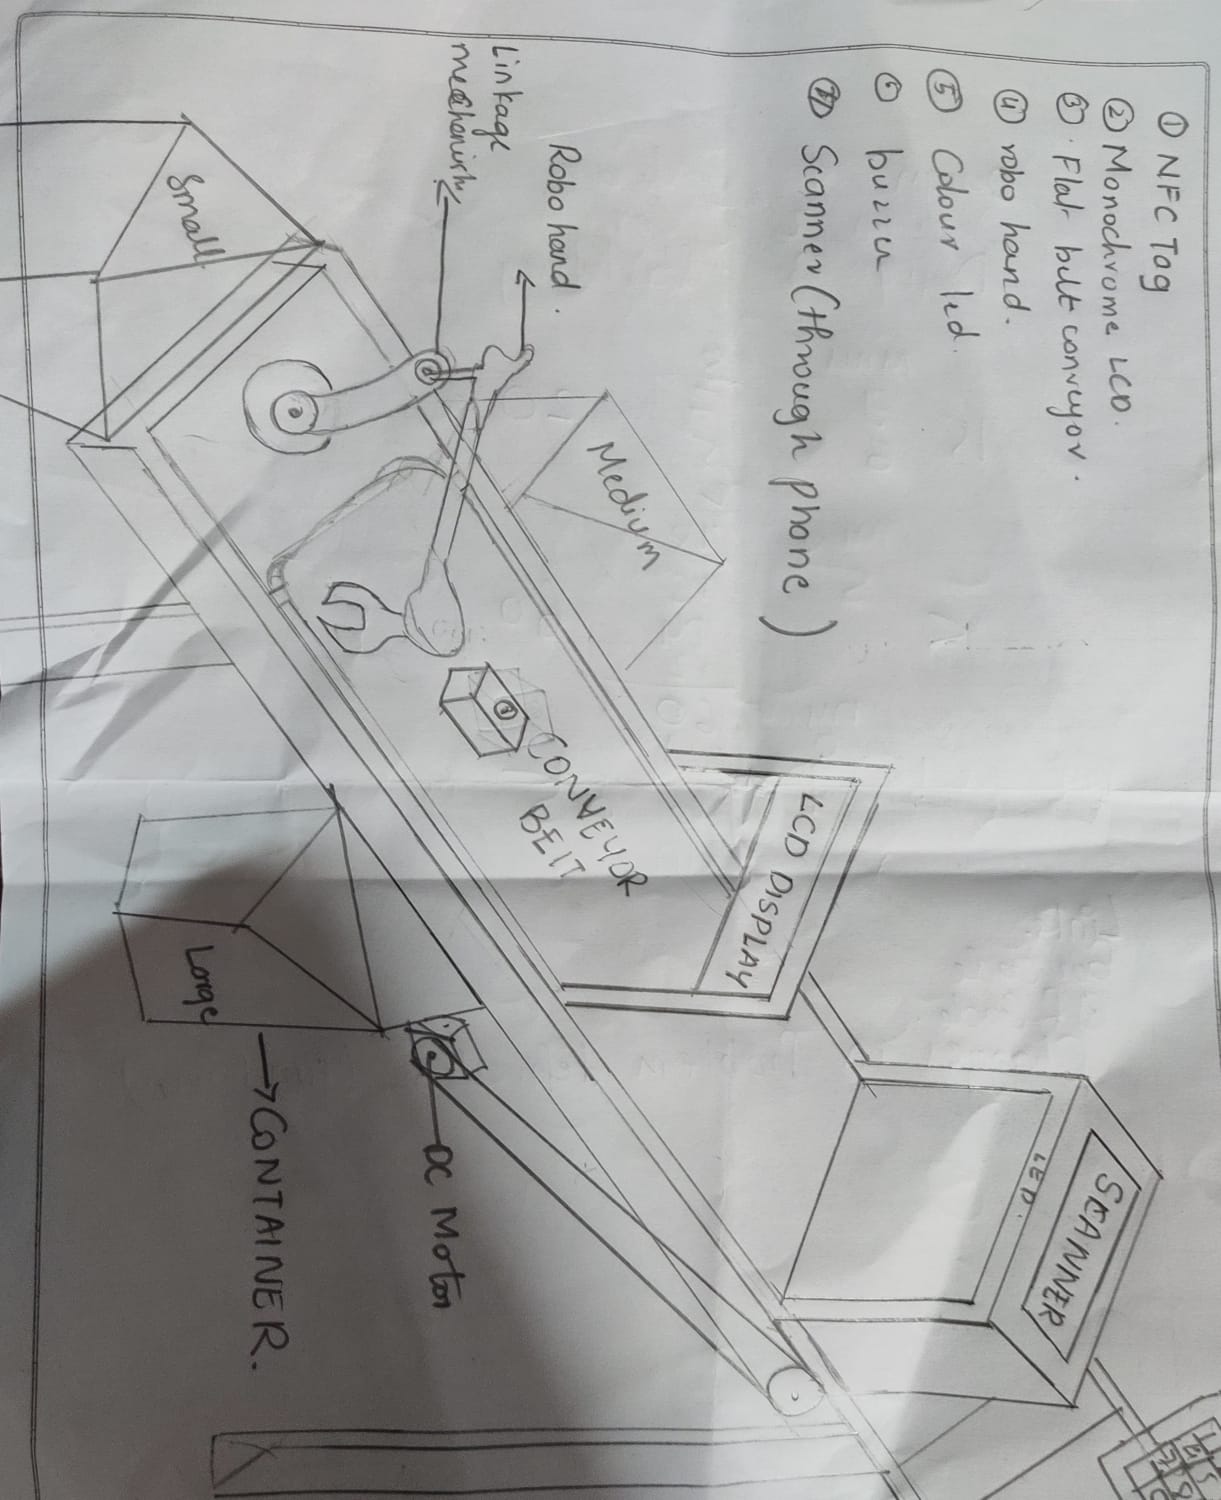 ① NFC Tag
② Monochrome LCD.
③ Flat belt conveyor.
④ robo hand.
⑤ Colour led.
⑥ buzzer
⑦ Scanner (through phone)
SCANNER
LED.
LCD DISPLAY
Medium
CONVEYOR
BELT
Robo hand.
Linkage
DC Motor
CONTAINER.
Small
Large